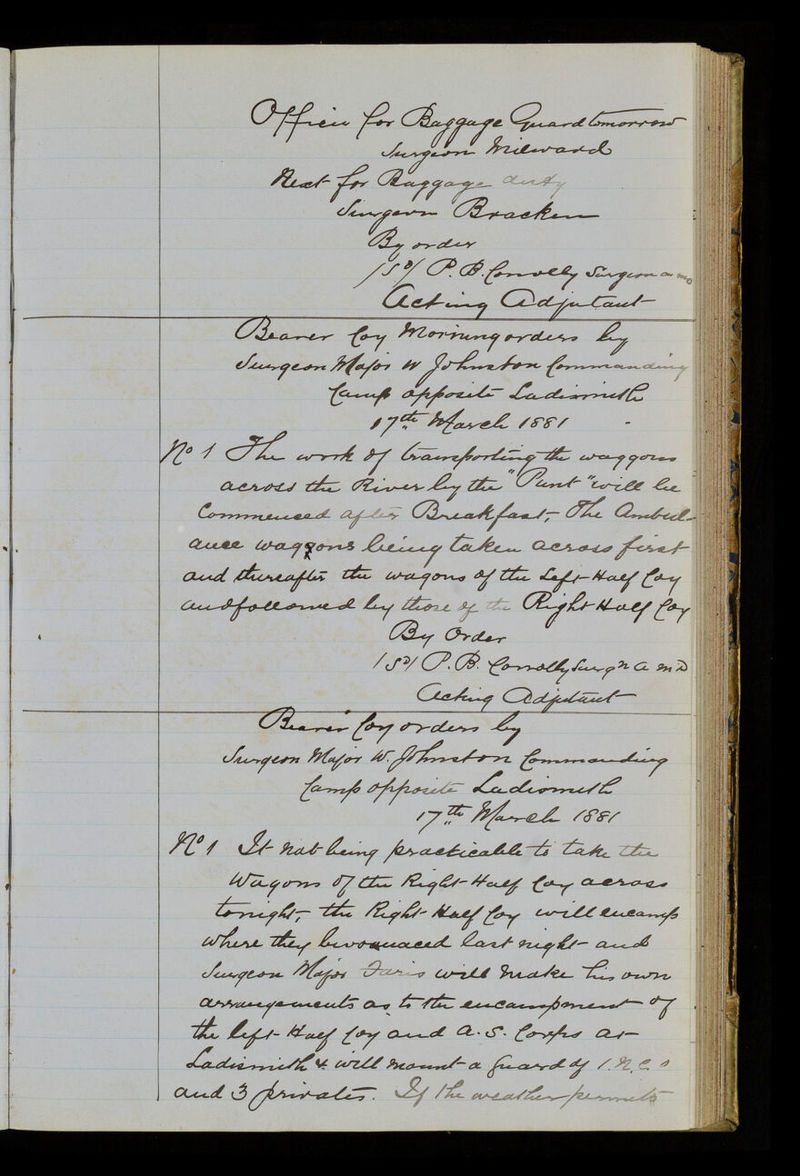 Officer for Baggage Guard tomorrow
Surgeon Milward
Next for Baggage duty
Surgeon Bracken
By order
/Sd/ P. B. Connolly Surgeon A MD
Acting Adjutant
Bearer Coy Morning orders by
Surgeon Major W Johnston Commanding
Camp opposite Ladismith
17th March 1881
No 1 The work of transporting the waggons
across the River by the "Punt" will be
Commenced after Breakfast, The Ambul-
ance waggons being taken across first
and thereafter the wagons of the Left Half Coy
and followed by those of the Right Half Coy
By Order
/Sd/ P. B. Connolly Surgn A M D
Acting Adjutant
Bearer Coy orders by
Surgeon Major W. Johnston Commanding
Camp opposite Ladismith
17th March 1881
No 1 It not being practicable to take the
Wagons of the Right Half Coy across
tonight, the Right Half Coy will encamp
where they bivouaced last night and
Surgeon Major Faris will make his own
arrangements as to the encampment of
the left Half Coy and A. S. Corps at
Ladismith & will mount a Guard of 1. N. C. O
and 3 privates. If the weather permits